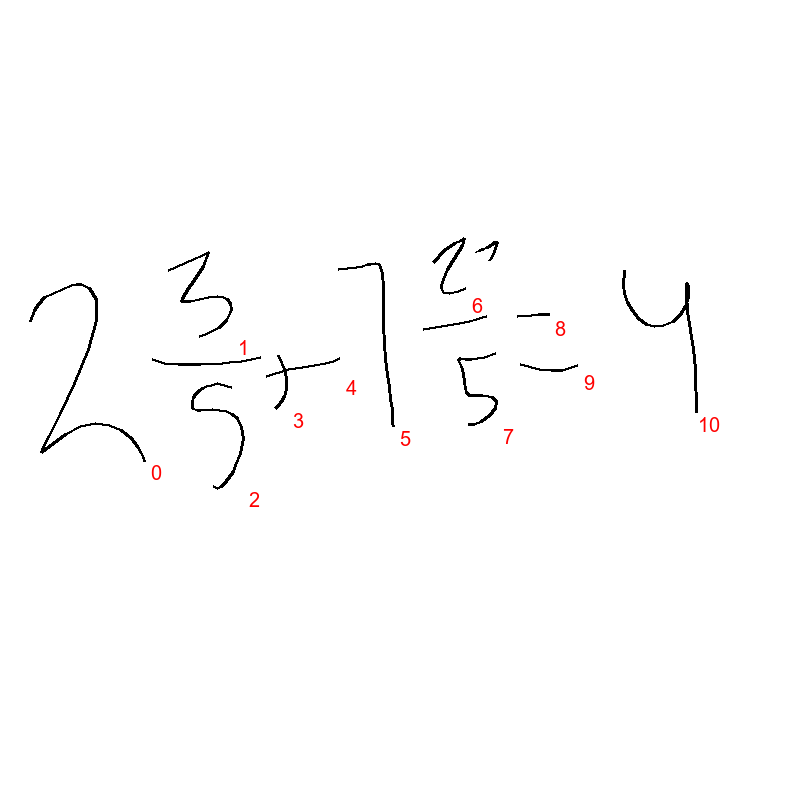 2 3/5 + 1 2/5 = 4
0 1 2 3 4 5 6 7 8 9 10